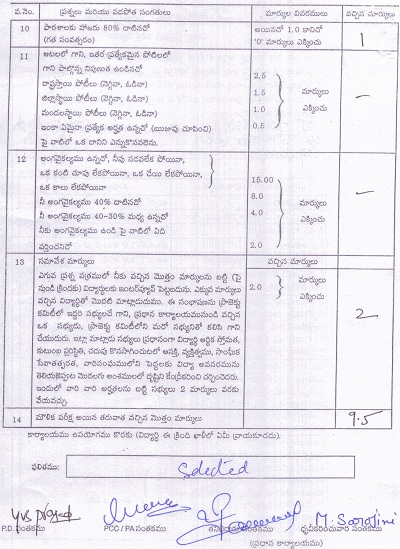 వ.నెం. ప్రశ్నలు మరియు పడపోత సంగతులు మార్కుల వివరములు వచ్చిన మార్కులు
10 పాఠశాలకు హాజరు 80% దాటినదో అయినచో 1.0 కానిచో 1
(గత సంవత్సరం) '0' మార్కులు ఎక్కించు
11 ఆటలలో గాని, ఇతర ప్రత్యేకమైన పోటీలలో
గాని పాల్గొన్న నిపుణత ఉండినదో
రాష్ట్రస్థాయి పోటీలు (నెగ్గినా, ఓడినా) 2.5
జిల్లాస్థాయి పోటీలు (నెగ్గినా, ఓడినా) 1.5 మార్కులు
మండలస్థాయి పోటీలు (నెగ్గినా, ఓడినా) 1.0 ఎక్కించు
ఇంకా ఏమైనా ప్రత్యేక అర్హత ఉన్నదో (యిజువు చూపించి) 0.5
పై వాటిలో ఒక దానిని ఎన్నుకొనవలెను.
12 అంగవైకల్యము ఉన్నదో, నీవు నడవలేక పోయినా,
ఒక కంటి చూపు లేకపోయినా, ఒక చేయి లేకపోయినా, 15.00
ఒక కాలు లేకపోయినా 8.0 మార్కులు
నీ అంగవైకల్యము 40% దాటినదో 4.0 ఎక్కించు
నీ అంగవైకల్యము 40-30% మధ్య ఉన్నదో
నీకు అంగవైకల్యము ఉండి పై వాటిలో ఏది
వర్తించనిచో 2.0
13 సమావేశ మార్కులు వచ్చిన మార్కులు
ఎగువ ప్రశ్న పత్రములో నీకు వచ్చిన మొత్తం మార్కులను బట్టి (పై 2.0 మార్కులు
నుండి క్రిందకు) విద్యార్థులకు ఇంటర్వ్యూవ్ పెట్టబడును. ఎక్కువ మార్కులు ఎక్కించు
వచ్చిన విద్యార్థితో మొదటి మాట్లాడుదుము. ఈ సంభాషణను ప్రాజెక్టు 2
కమిటీలో ఇద్దరి సభ్యులచే గాని, ప్రధాన కార్యాలయమునుండి వచ్చిన
ఒక సభ్యుడు, ప్రాజెక్టు కమిటీలోని మరో సభ్యునితో కలిసి గాని
చేయుదురు. ఇట్లా మాట్లాడు సభ్యులు ప్రధానంగా విద్యార్థి ఆర్థిక స్తోమత,
కుటుంబ పరిస్థితి, చదువు కొనసాగించుటలో ఆసక్తి, వ్యక్తిత్వము, సాంఘిక
సేవాతత్పరత,
తెలియజెప్పుట మొదలగు అంశములలో దృష్టిని కేంద్రీకరించి చర్చించెదరు.
ఇందులో వారి వారి అర్హతలను బట్టి సభ్యులు 2 మార్కులు వరకు
వేయవచ్చు.
14 మౌళిక పరీక్ష అయిన తరువాత వచ్చిన మొత్తం మార్కులు 9.5
కార్యాలయము ఉపయోగము కొరకు (విద్యార్థి ఈ క్రింది ఖాళీలో ఏమీ వ్రాయకూడదు).
ఫలితము: Selected
M. Sarojini
P.D. సంతకము PCC / PA సంతకము ధృవీకరించువారి సంతకము
(ప్రధాన కార్యాలయము)